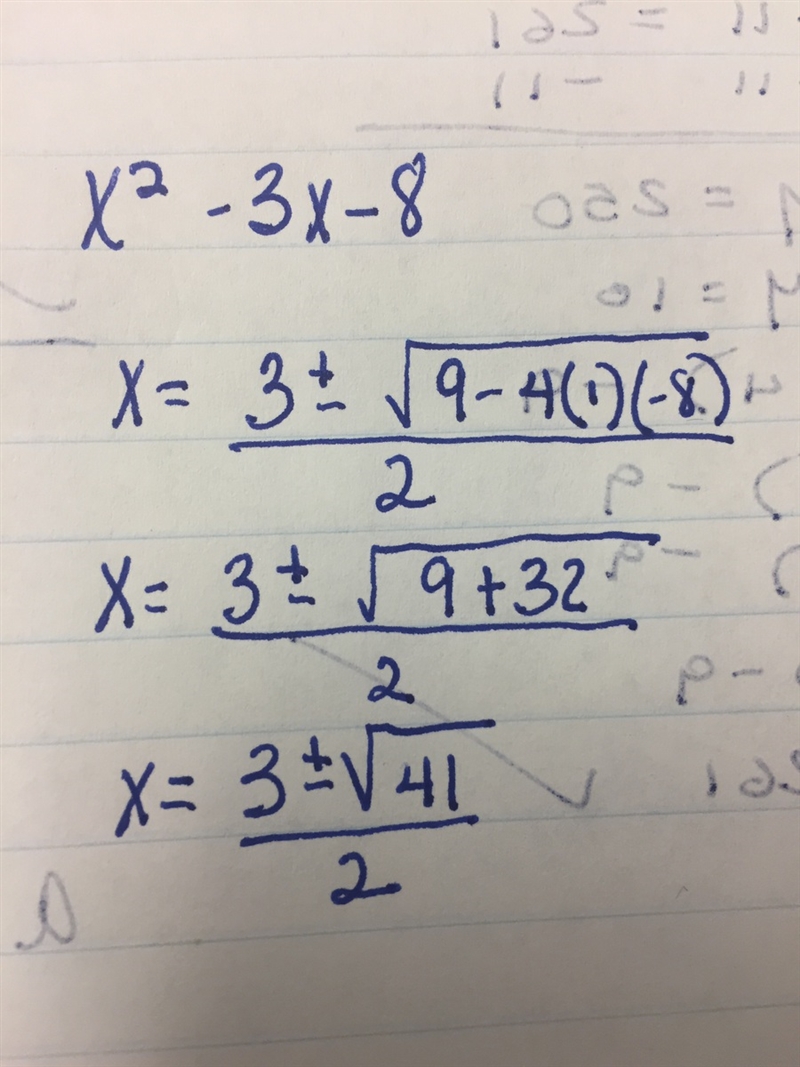 x² - 3x - 8
x = 3 ± √9 - 4(1)(-8) / 2
x = 3 ± √9 + 32 / 2
x = 3 ± √41 / 2